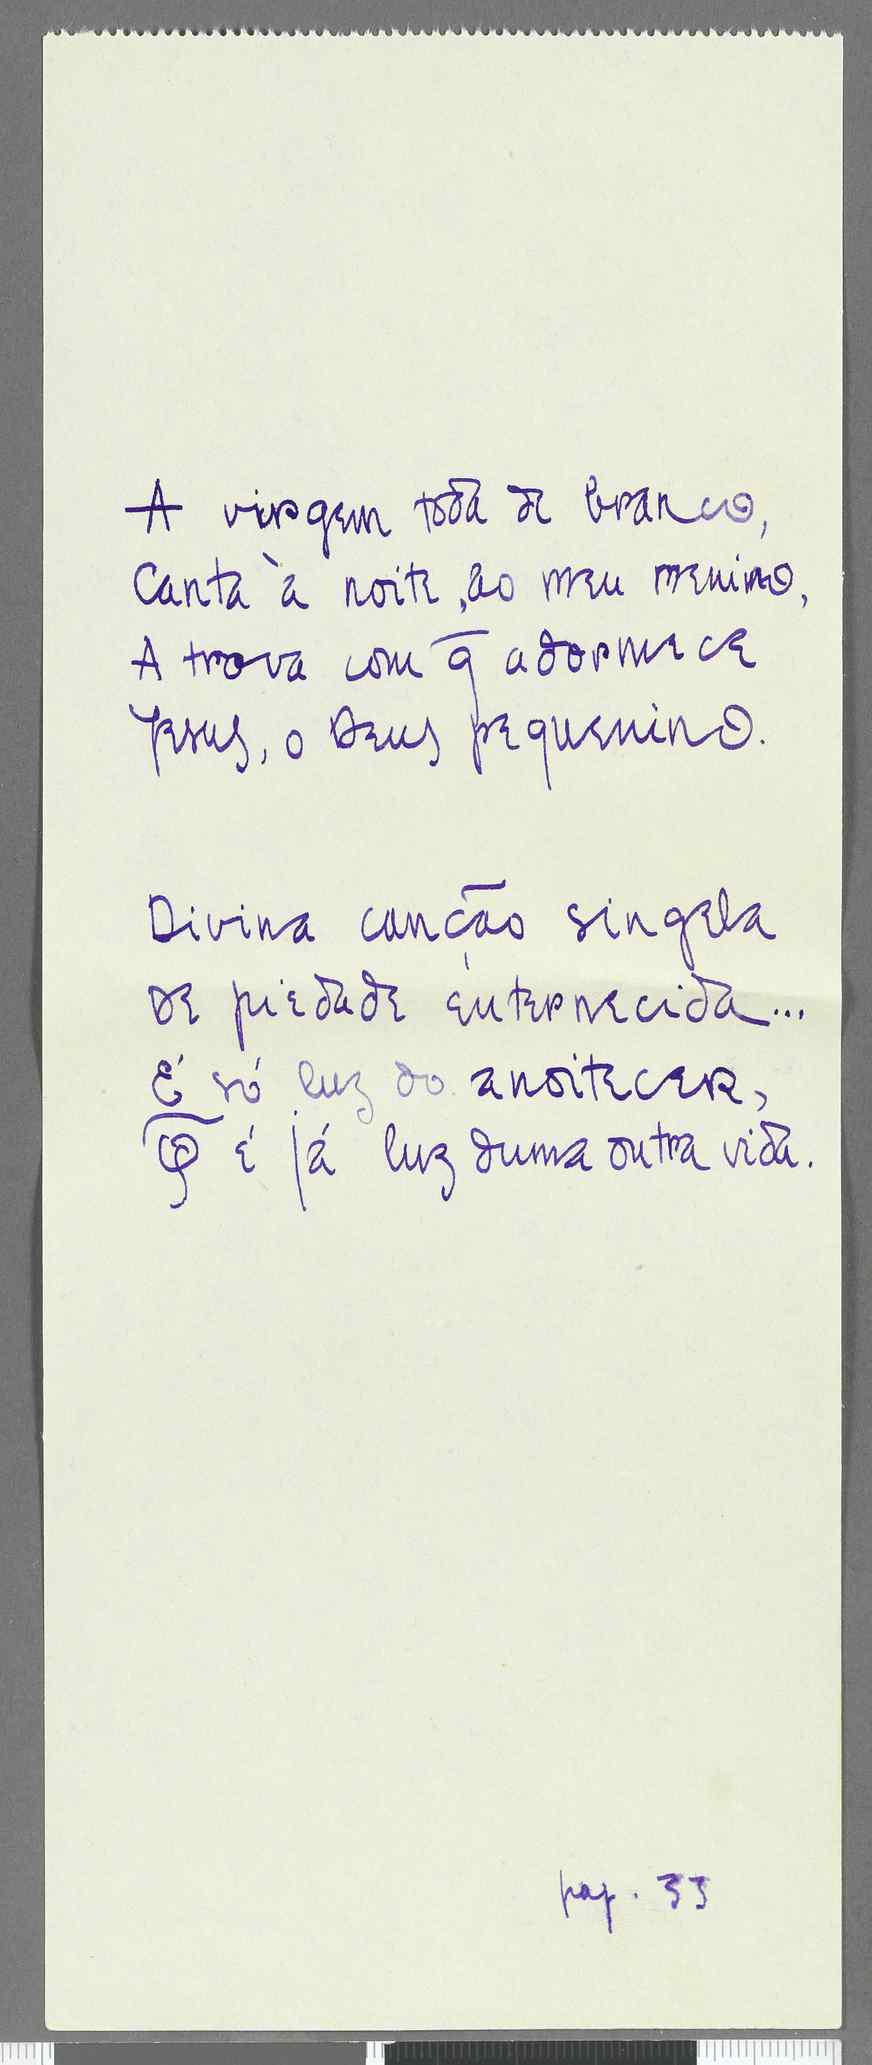 A virgem toda de branco,
Canta à noite, ao meu menino,
A trova com q̄ adormece
Jesus, o Deus pequenino.
Divina canção singela
De piedade enternecida...
É só luz do anoitecer,
Q̄ é já luz duma outra vida.
pag. 33